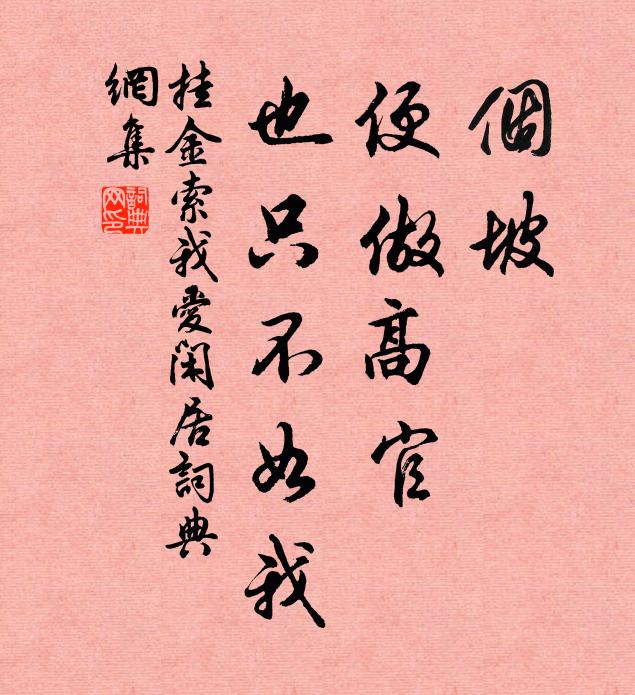 個坡
便做高官
也只不如我
挂金索我愛閑居詞典
網集
詞典
网印